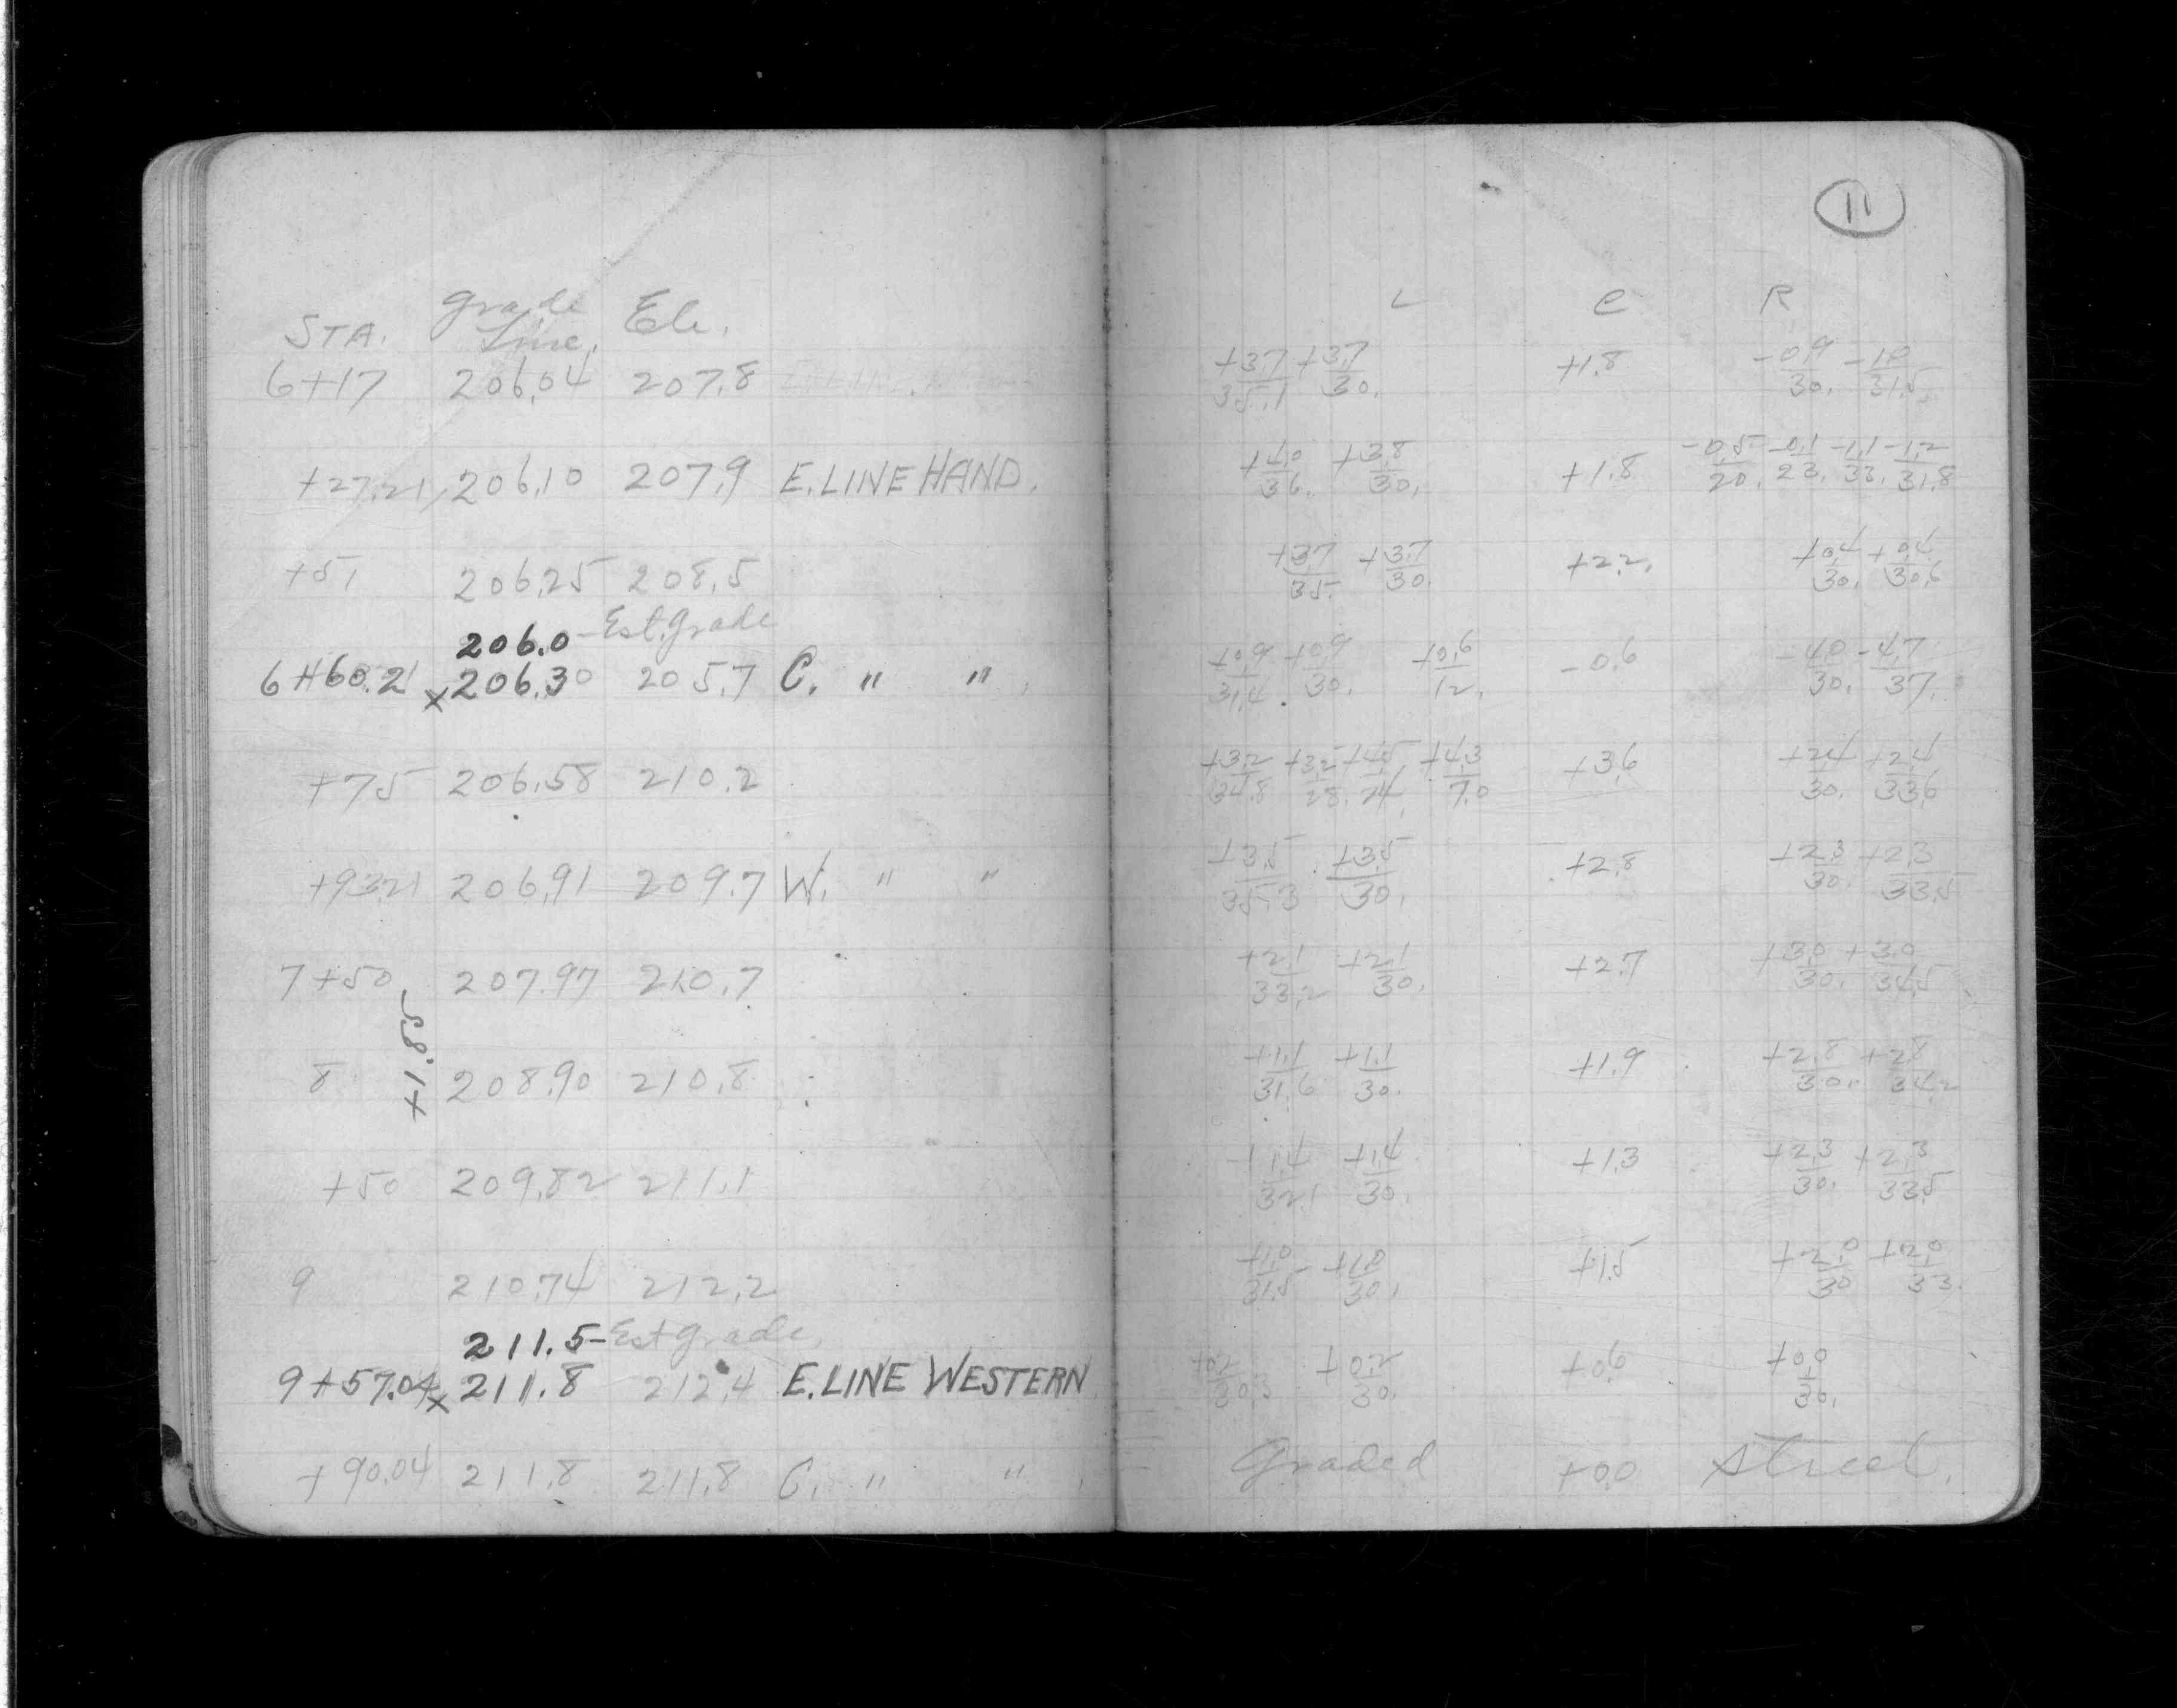 11
STA. Grade Line. Ele. L C R
6+17 206.04 207.8 +3.7/35.1 +3.7/30. +1.8 -0.9/30. -1.0/31.5
+27.21 206.10 207.9 E. LINE HAND. +4.0/36. +3.8/30. +1.8 -0.5/20. -0.1/23. -1.1/33. -1.2/31.8
+51 206.25 208.5 +3.7/35. +3.7/30. +2.2. +0.4/30. +0.4/30.6
206.0 - Est. Grade
6+60.21 x 206.30 205.7 C. " " +0.9/31.4 +0.9/30. +0.6/12. -0.6 -4.0/30. -4.7/37.
+75 206.58 210.2 +3.2/34.8 +3.2/28. +4.5/24. +4.3/7.0 +3.6 +2.4/30. +2.4/33.6
+93.21 206.91 209.7 W. " " +3.5/35.3 +3.5/30. +2.8 +2.3/30. +2.3/33.5
7+50 207.97 210.7 +2.1/33.2 +2.1/30. +2.7 +3.0/30. +3.0/34.5
+1.85
8 208.90 210.8 +1.1/31.6 +1.1/30. +1.9 +2.8/30. +2.8/34.2
+50 209.82 211.1 +1.4/32.1 +1.4/30. +1.3 +2.3/30. +2.3/33.5
9 210.74 212.2 +1.0/31.5 +1.0/30. +1.5 +2.0/30 +2.0/33.
211.5 - Est Grade
9+57.04 x 211.8 212.4 E. LINE WESTERN +0.2/30.3 +0.2/30. +0.6 +0.0/30.
+90.04 211.8 211.8 C. " " Graded +0.0 Street.